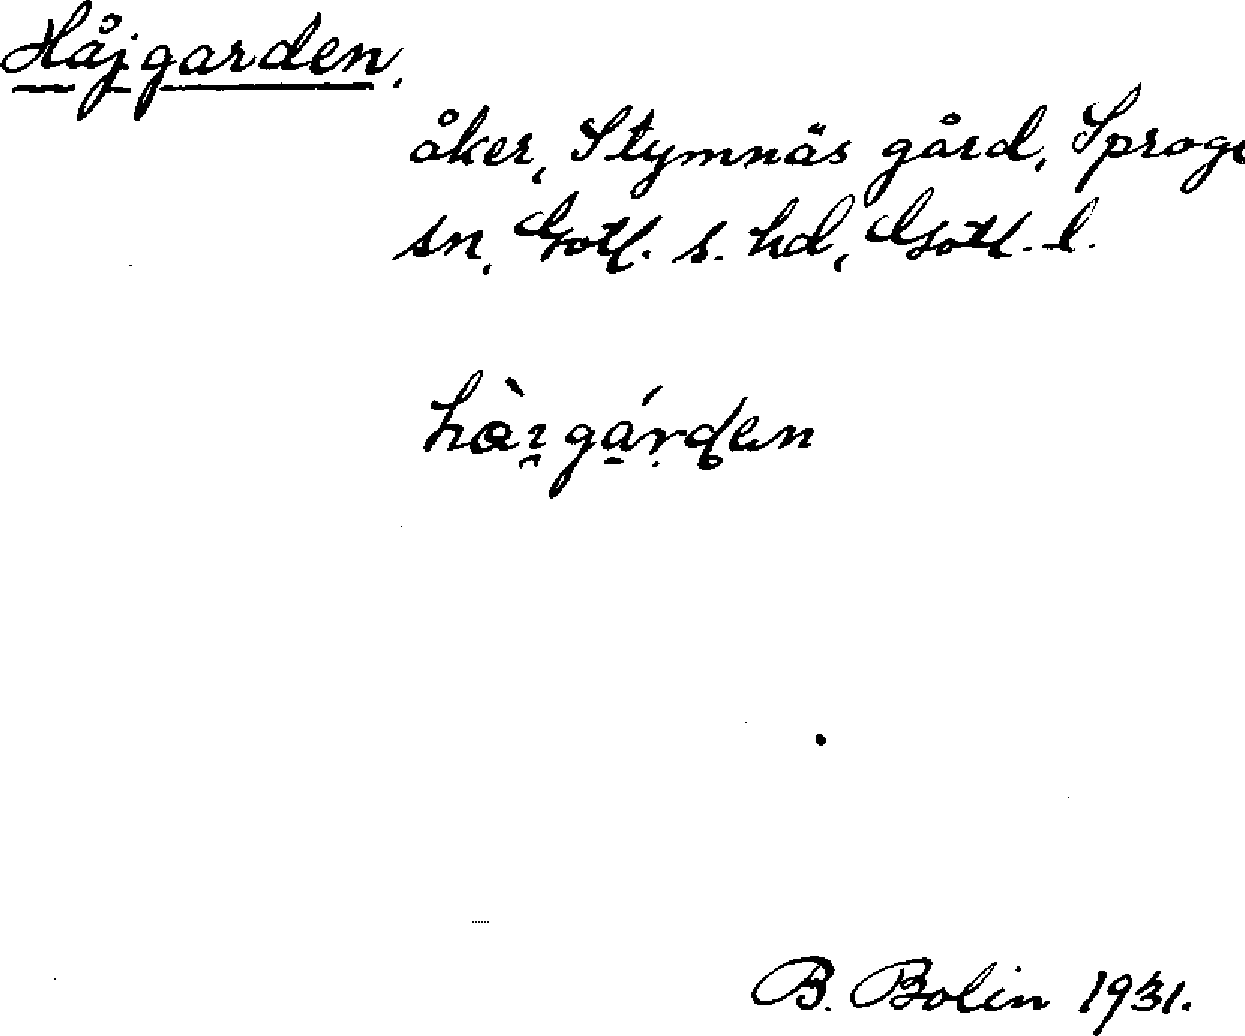 Håjgarden.
åker, Stymnäs gård, Sproge
sn, Gotl. s. hd, Gotl. l.
B. Bolin 1931.